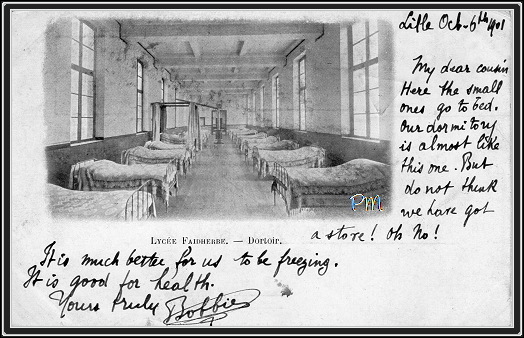 Lille Oct. 6th 1901
My dear cousin
Here the small
ones go to bed.
Our dormitory
is almost like
this one. But
do not think
we have got
a stove! Oh No!
PM
LYCÉE FAIDHERBE. — Dortoir.
It is much better for us to be freezing.
It is good for health.
Yours truly Bobbie